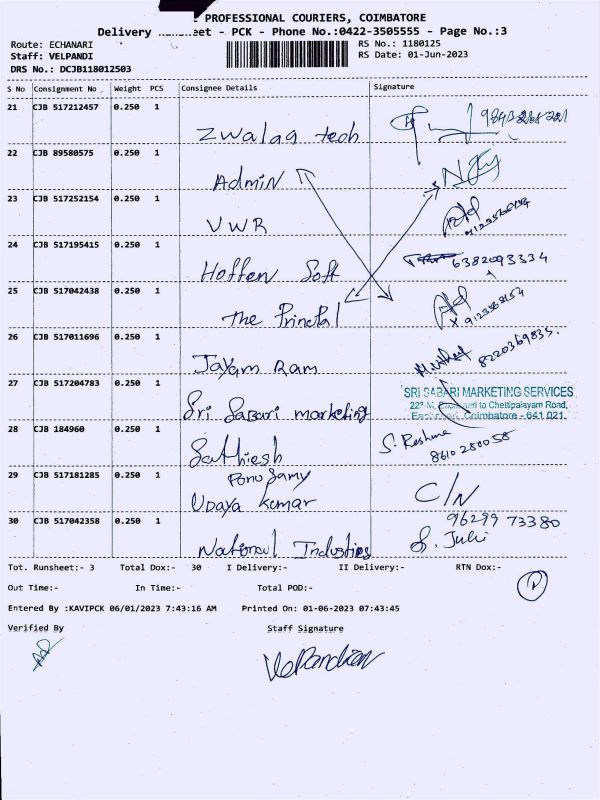 PROFESSIONAL COURIERS, COIMBATORE
Delivery eet - PCK - Phone No.:0422-3505555 - Page No.:3
Route: ECHANARI RS No.: 1180125
Staff: VELPANDI RS Date: 01-Jun-2023
DRS No.: DCJB118012503
S No Consignment No Weight PCS Consignee Details Signature
21 CJB 517212457 0.250 1
Zwalag tech
22 CJB 89580575 0.250 1
Admin
23 CJB 517252154 0.250 1
VWR
24 CJB 517195415 0.250 1
Hoffen Soft 6382093334
25 CJB 517042438 0.250 1
The Principal
26 CJB 517011696 0.250 1
Jayam Ram 8220369835.
27 CJB 517204783 0.250 1
Sri Sabari marketing
SRI SABARI MARKETING SERVICES
to Chettipalayam Road,
Coimbatore - 641 021.
28 CJB 184960 0.250 1
Sathiesh S. Reshma
8610280058
29 CJB 517181285 0.250 1
Ponu Samy
Udaya Kumar C/N
30 CJB 517042358 0.250 1 96299 73380
National Industries S. Juli
Tot. Runsheet:- 3 Total Dox:- 30 I Delivery:- II Delivery:- RTN Dox:-
Out Time:- In Time:- Total POD:-
Entered By :KAVIPCK 06/01/2023 7:43:16 AM Printed On: 01-06-2023 07:43:45
Verified By Staff Signature
VelPandian